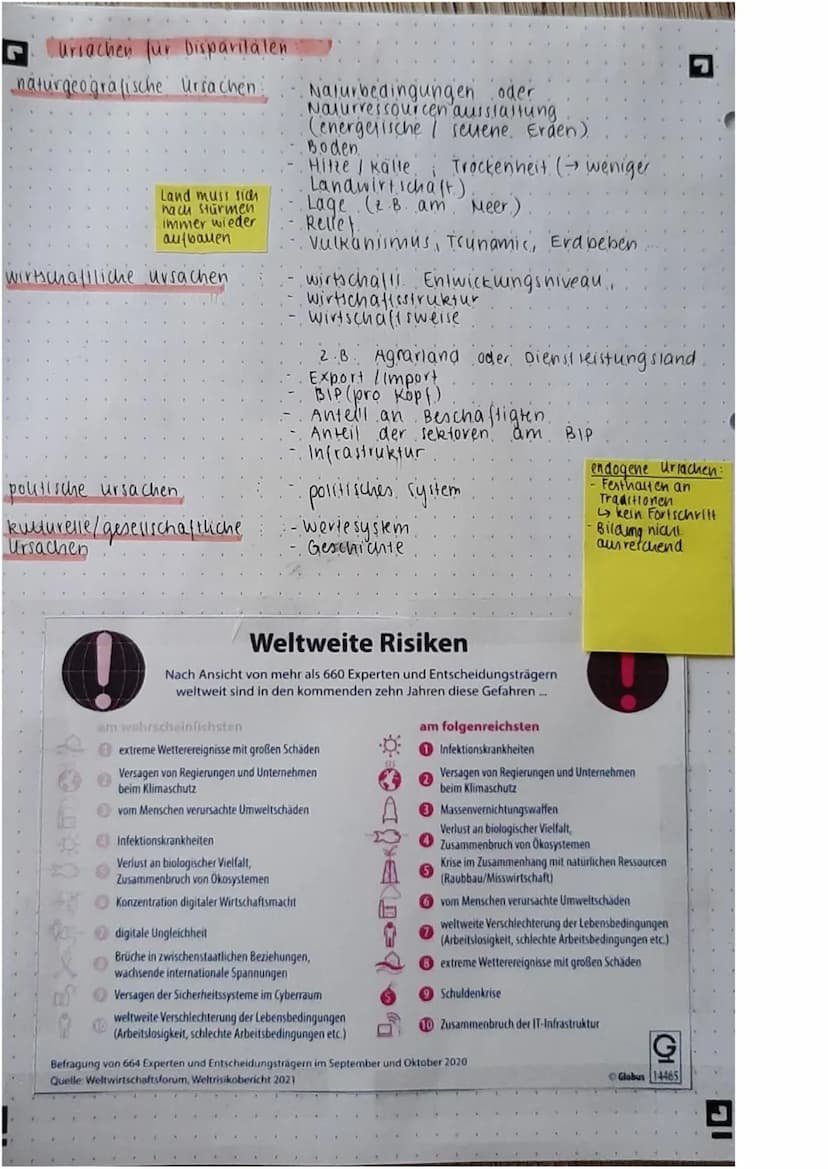 Ursachen für Disparitäten:
naturgeografische Ursachen:
- Naturbedingungen oder
Naturressourcenausstattung
(energetische / seltene Erden)
- Boden
- Hitze / Kälte ; Trockenheit (→ weniger
Landwirtschaft)
- Lage (z.B. am Meer)
- Relief
- Vulkanismus, Tsunamie, Erdbeben
Land muss sich
nach Stürmen
immer wieder
aufbauen
wirtschaftliche Ursachen :
- wirtschaftl. Entwicklungsniveau,
- Wirtschaftsstruktur
- Wirtschaftsweise
z.B. Agrarland oder Dienstleistungsland
- Export / Import
- BIP (pro Kopf)
- Anteil an Beschäftigten
- Anteil der Sektoren am BIP
- Infrastruktur
politische Ursachen :
- politisches System
kulturelle/gesellschaftliche :
Ursachen
- Wertesystem
- Geschichte
endogene Ursachen:
- Festhalten an
Traditionen
↳ kein Fortschritt
- Bildung nicht
ausreichend
Weltweite Risiken
Nach Ansicht von mehr als 660 Experten und Entscheidungsträgern
weltweit sind in den kommenden zehn Jahren diese Gefahren ...
am wahrscheinlichsten
1 extreme Wetterereignisse mit großen Schäden
2 Versagen von Regierungen und Unternehmen
beim Klimaschutz
3 vom Menschen verursachte Umweltschäden
4 Infektionskrankheiten
5 Verlust an biologischer Vielfalt,
Zusammenbruch von Ökosystemen
6 Konzentration digitaler Wirtschaftsmacht
7 digitale Ungleichheit
8 Brüche in zwischenstaatlichen Beziehungen,
wachsende internationale Spannungen
9 Versagen der Sicherheitssysteme im Cyberraum
10 weltweite Verschlechterung der Lebensbedingungen
(Arbeitslosigkeit, schlechte Arbeitsbedingungen etc.)
am folgenreichsten
1 Infektionskrankheiten
2 Versagen von Regierungen und Unternehmen
beim Klimaschutz
3 Massenvernichtungswaffen
4 Verlust an biologischer Vielfalt,
Zusammenbruch von Ökosystemen
5 Krise im Zusammenhang mit natürlichen Ressourcen
(Raubbau/Misswirtschaft)
6 vom Menschen verursachte Umweltschäden
7 weltweite Verschlechterung der Lebensbedingungen
(Arbeitslosigkeit, schlechte Arbeitsbedingungen etc.)
8 extreme Wetterereignisse mit großen Schäden
9 Schuldenkrise
10 Zusammenbruch der IT-Infrastruktur
Befragung von 664 Experten und Entscheidungsträgern im September und Oktober 2020
Quelle: Weltwirtschaftsforum, Weltrisikobericht 2021
© Globus 14465